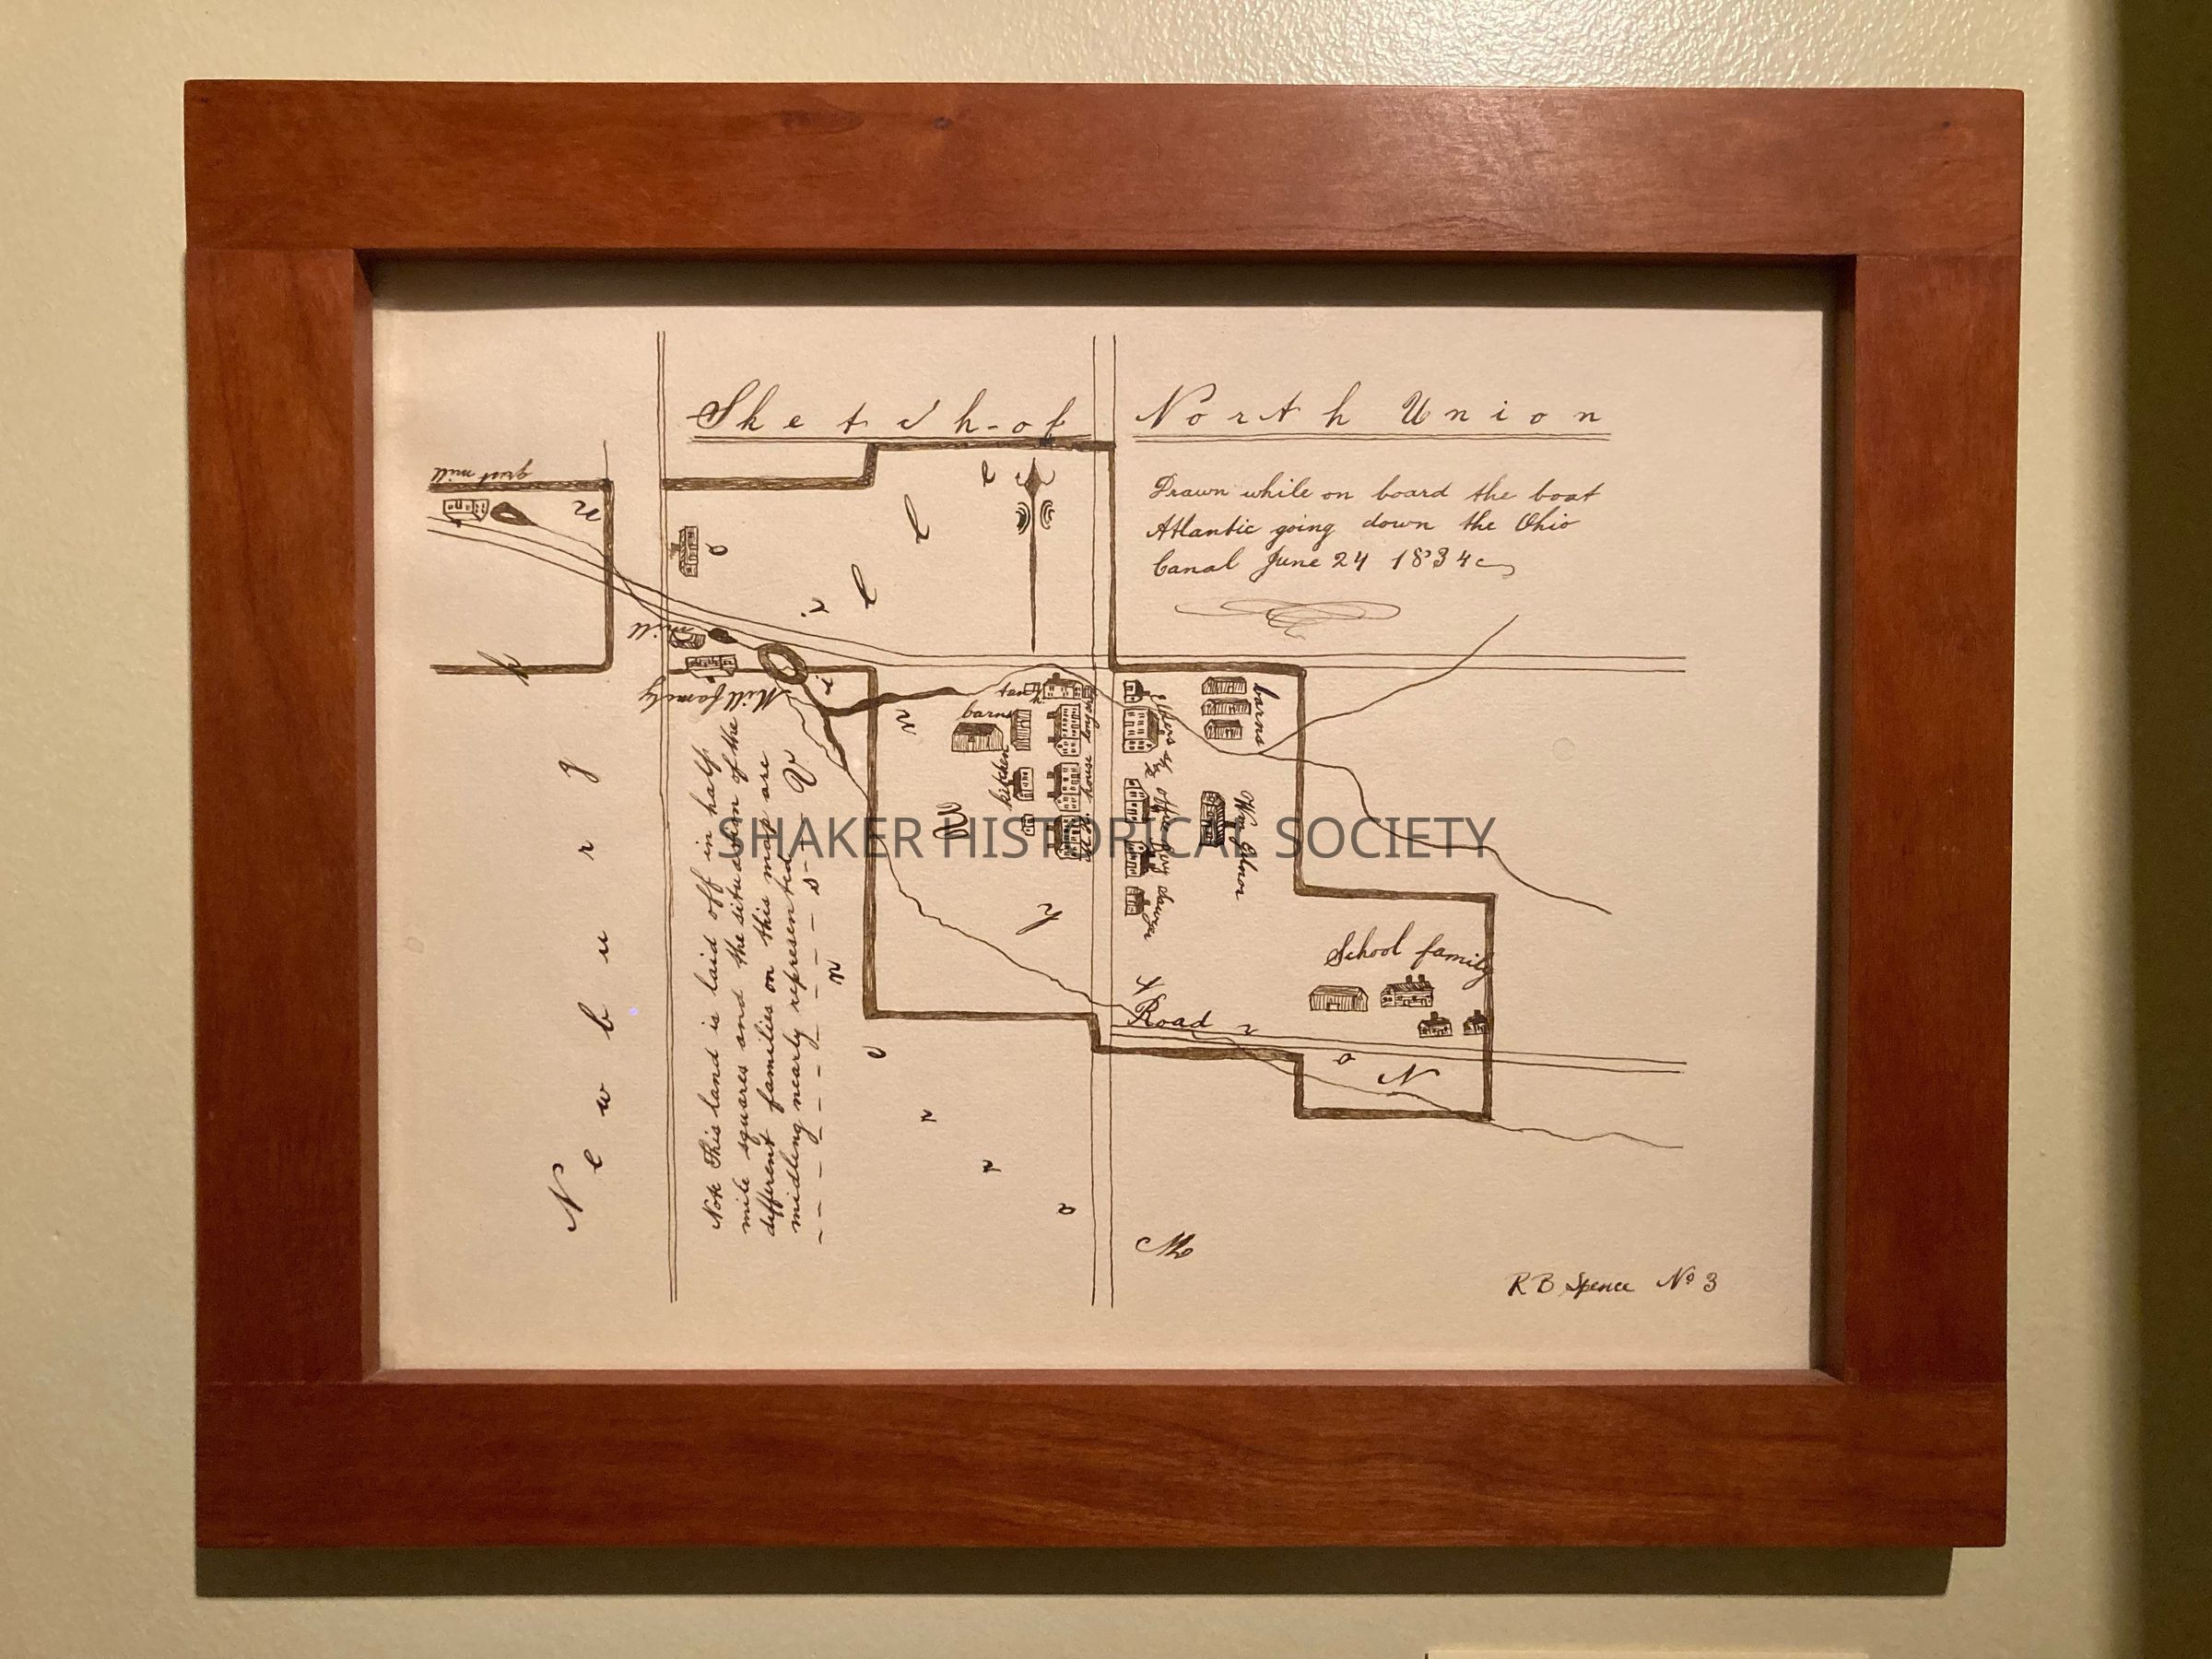 Sketch-of North Union
Drawn while on board the boat
Atlantic going down the Ohio
Canal June 24 1834
grist mill
mill
Mill family
tan
barn
kitchen
house
barns
office
School family
Road
Newburg
Note This land is laid off in half
mile squares and the situation of the
different families on this map are
middling nearly represented
R B Spence No 3
SHAKER HISTORICAL SOCIETY